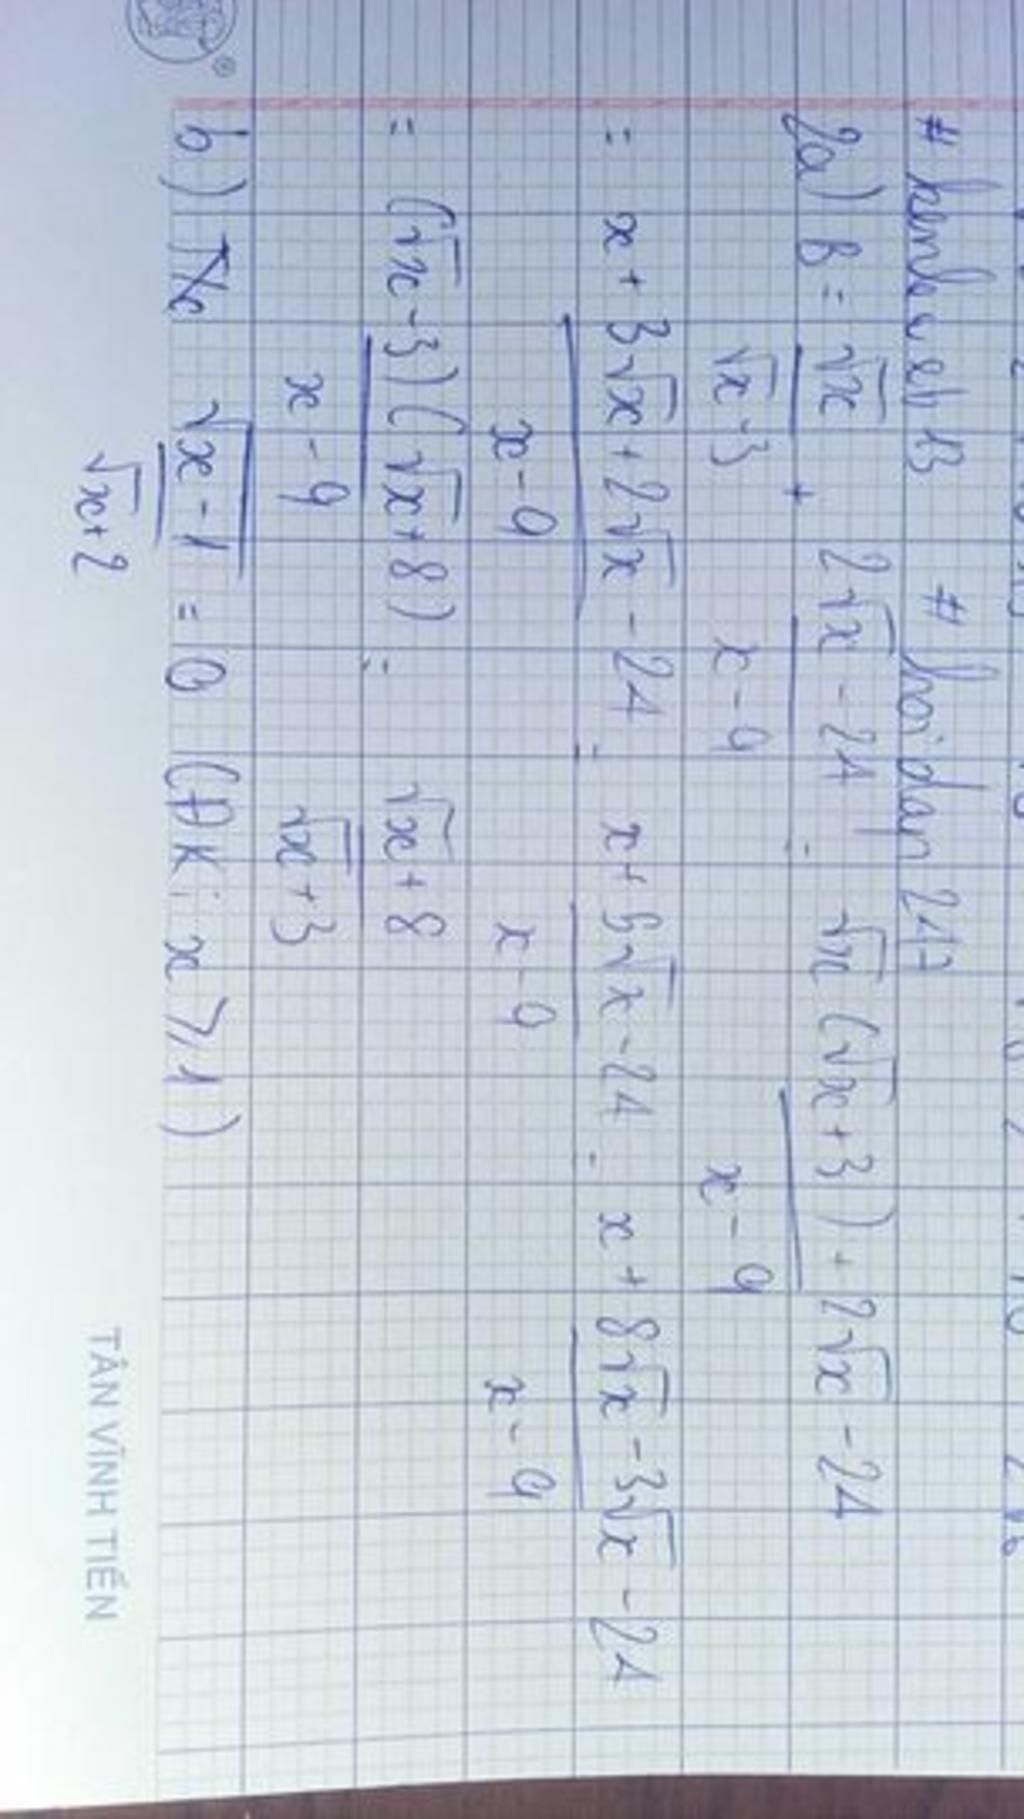 # kenlaweb13 # hoidap247
2a) B = √x/(√x-3) + (2√x - 24)/(x-9) = (√x (√x+3) + 2√x - 24)/(x-9)
= (x + 3√x + 2√x - 24)/(x-9) = (x + 5√x - 24)/(x-9) = (x + 8√x - 3√x - 24)/(x-9)
= ((√x - 3)(√x + 8))/(x-9) = (√x + 8)/(√x + 3)
b) √(x-1)/(√x+2) = 0 (ĐK: x ⩾ 1)
TÂN VĨNH TIẾN
®